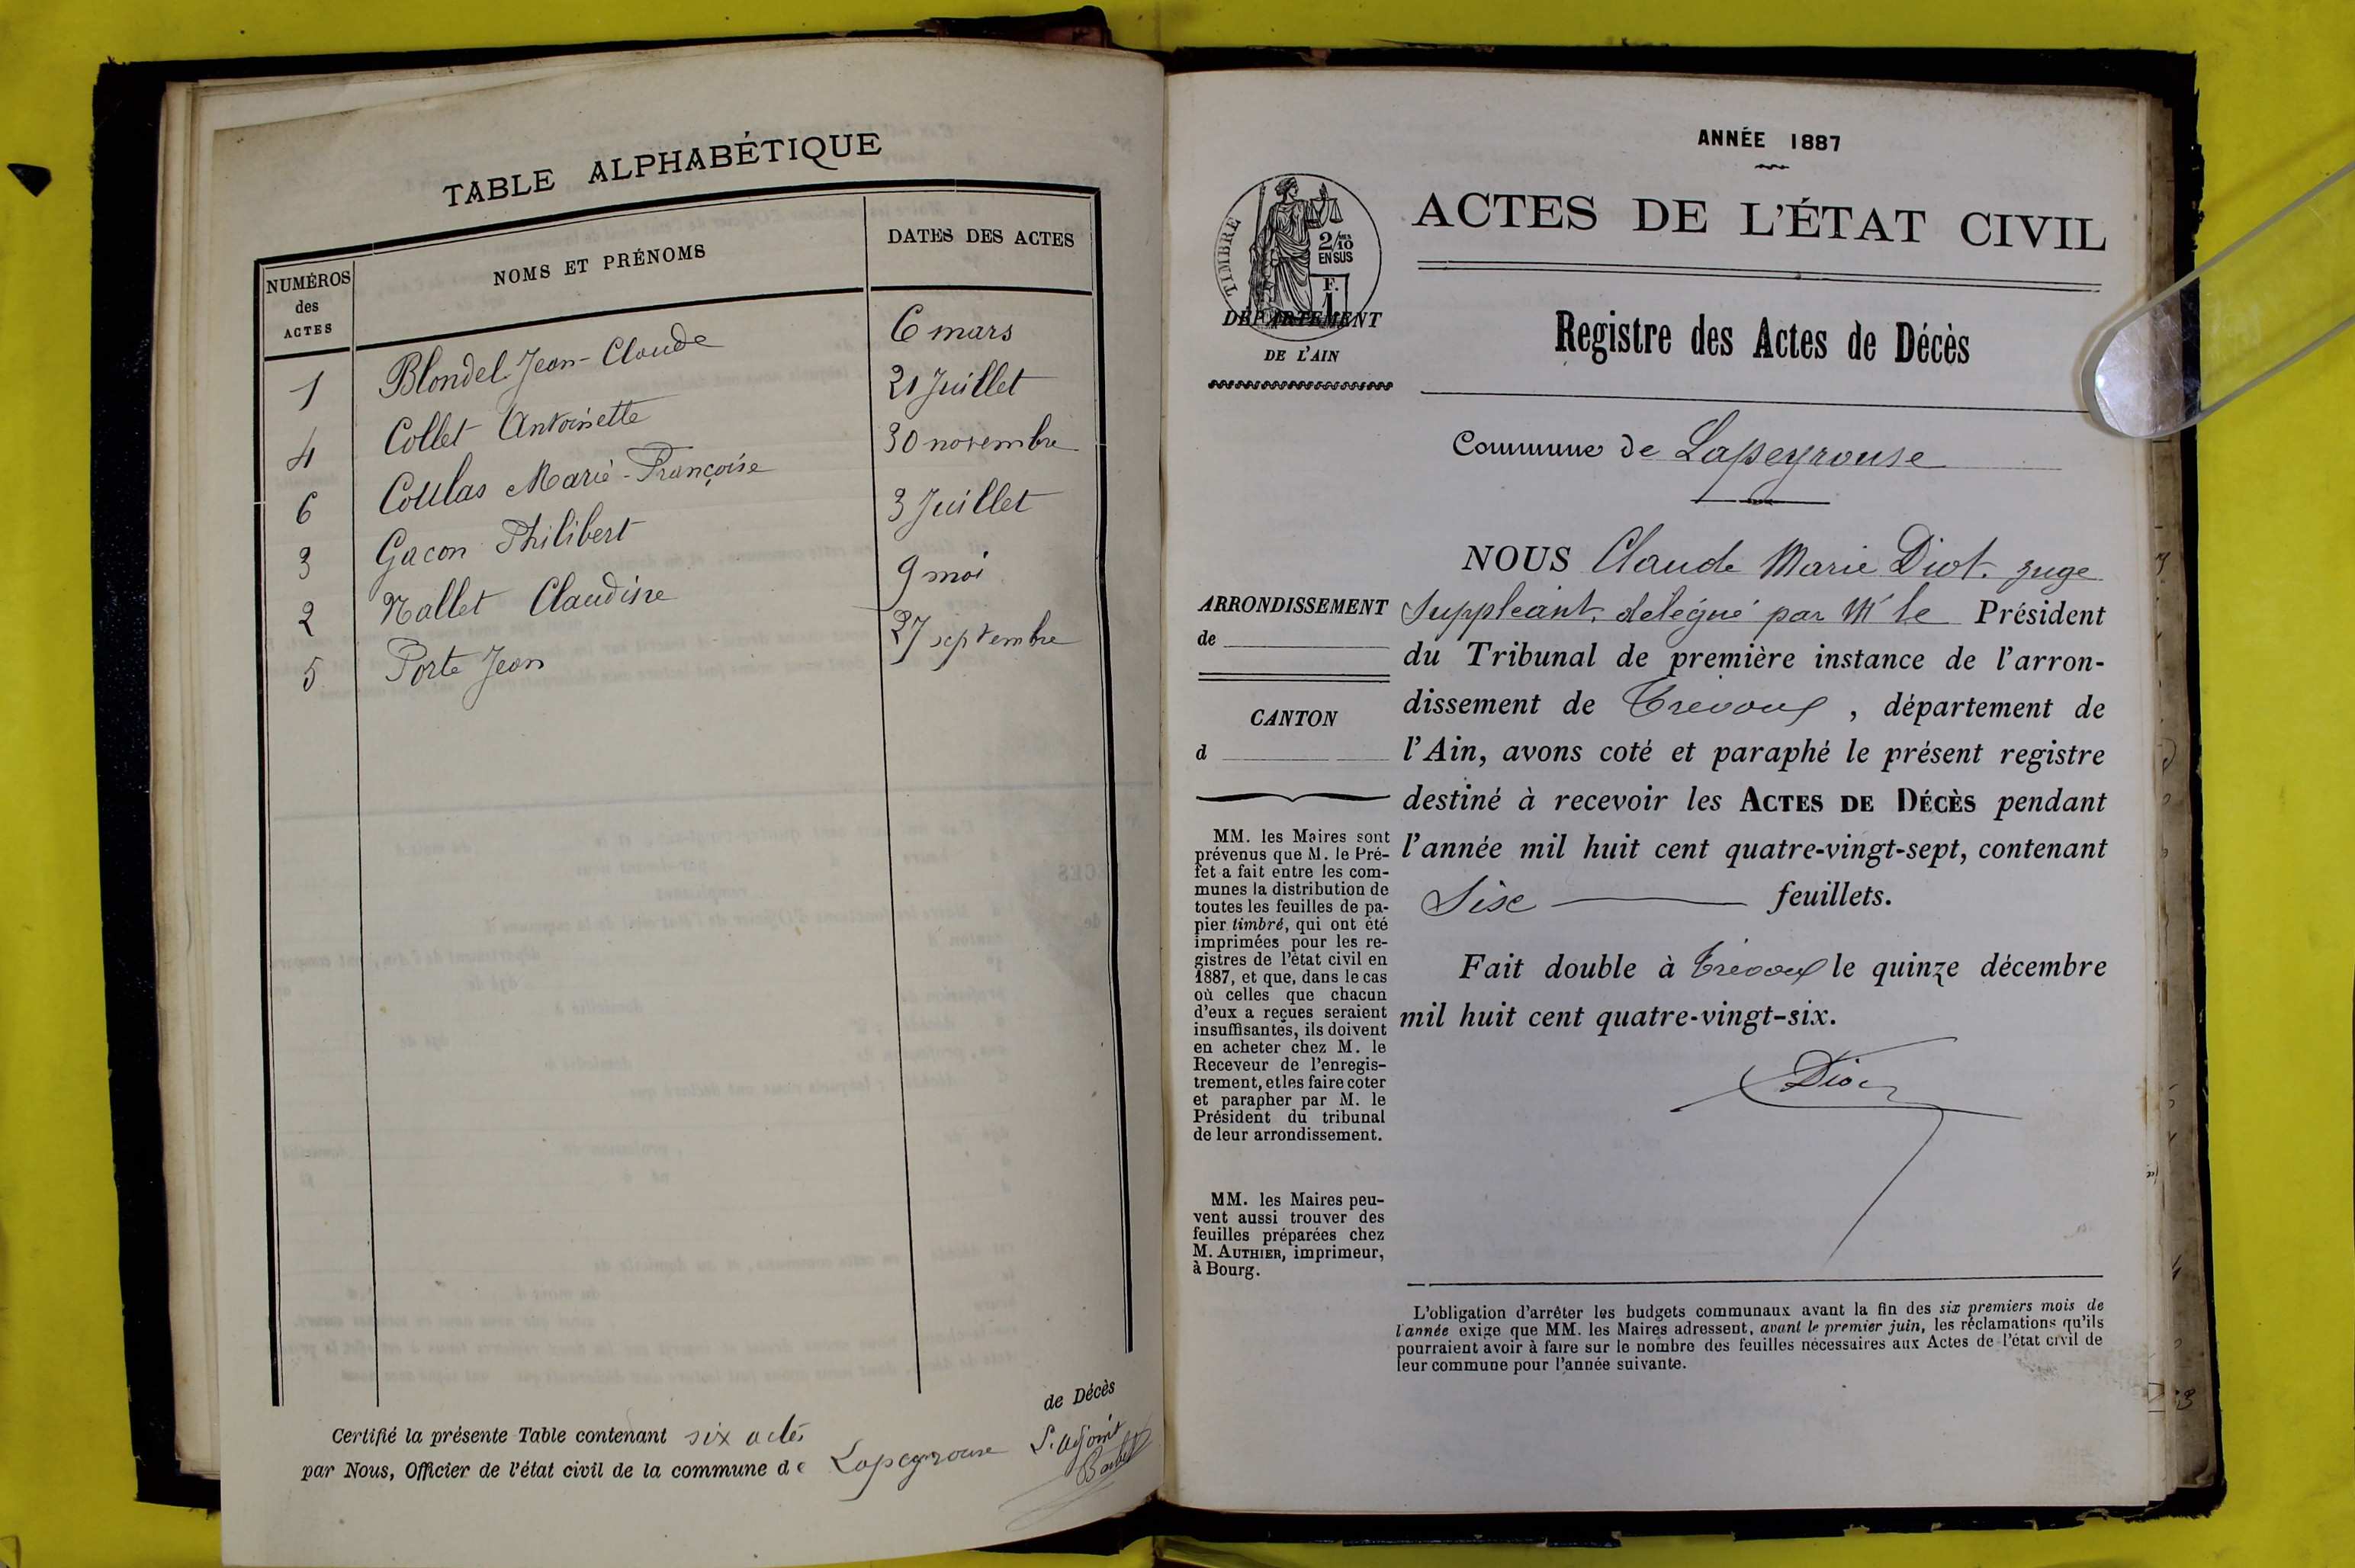 TABLE ALPHABÉTIQUE
NUMÉROS des ACTES
NOMS ET PRÉNOMS
DATES DES ACTES
1 Blondel Jean-Claude 6 mars
4 Collet Antoinette 21 Juillet
6 Coulas Marie-Françoise 30 novembre
3 Gacon Philibert 3 Juillet
2 Nallet Claudine 9 mai
5 Porte Jean 27 septembre
de Décès
Certifié la présente Table contenant six actes
par Nous, Officier de l'état civil de la commune de Lapeyrouse
L'adjoint
ANNÉE 1887
ACTES DE L'ÉTAT CIVIL
TIMBRE
2/10
EN SUS
F.
1
DÉPARTEMENT
DE L'AIN
Registre des Actes de Décès
Commune de Lapeyrouse
ARRONDISSEMENT
de
CANTON
d
MM. les Maires sont
prévenus que M. le Pré-
fet a fait entre les com-
munes la distribution de
toutes les feuilles de pa-
pier timbré, qui ont été
imprimées pour les re-
gistres de l'état civil en
1887, et que, dans le cas
où celles que chacun
d'eux a reçues seraient
insuffisantes, ils doivent
en acheter chez M. le
Receveur de l'enregis-
trement, et les faire coter
et parapher par M. le
Président du tribunal
de leur arrondissement.
MM. les Maires peu-
vent aussi trouver des
feuilles préparées chez
M. AUTHIER, imprimeur,
à Bourg.
NOUS Claude Marie Diot. juge
suppléant, délégué par Mr le Président
du Tribunal de première instance de l'arron-
dissement de Trévoux, département de
l'Ain, avons coté et paraphé le présent registre
destiné à recevoir les ACTES DE DÉCÈS pendant
l'année mil huit cent quatre-vingt-sept, contenant
Six feuillets.
Fait double à Trévoux le quinze décembre
mil huit cent quatre-vingt-six.
Diot
L'obligation d'arrêter les budgets communaux avant la fin des six premiers mois de
l'année exige que MM. les Maires adressent, avant le premier juin, les réclamations qu'ils
pourraient avoir à faire sur le nombre des feuilles nécessaires aux Actes de l'état civil de
leur commune pour l'année suivante.